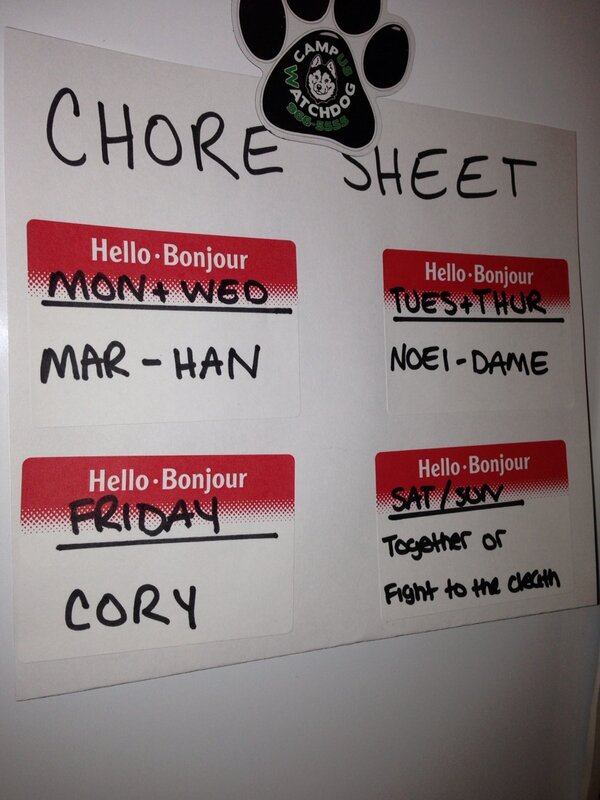 CAMPUS
WATCHDOG
966-5555
CHORE SHEET
Hello·Bonjour
MON + WED
MAR - HAN
Hello·Bonjour
TUES + THUR
NOEI - DAME
Hello·Bonjour
FRIDAY
CORY
Hello·Bonjour
SAT / SUN
Together or
Fight to the death